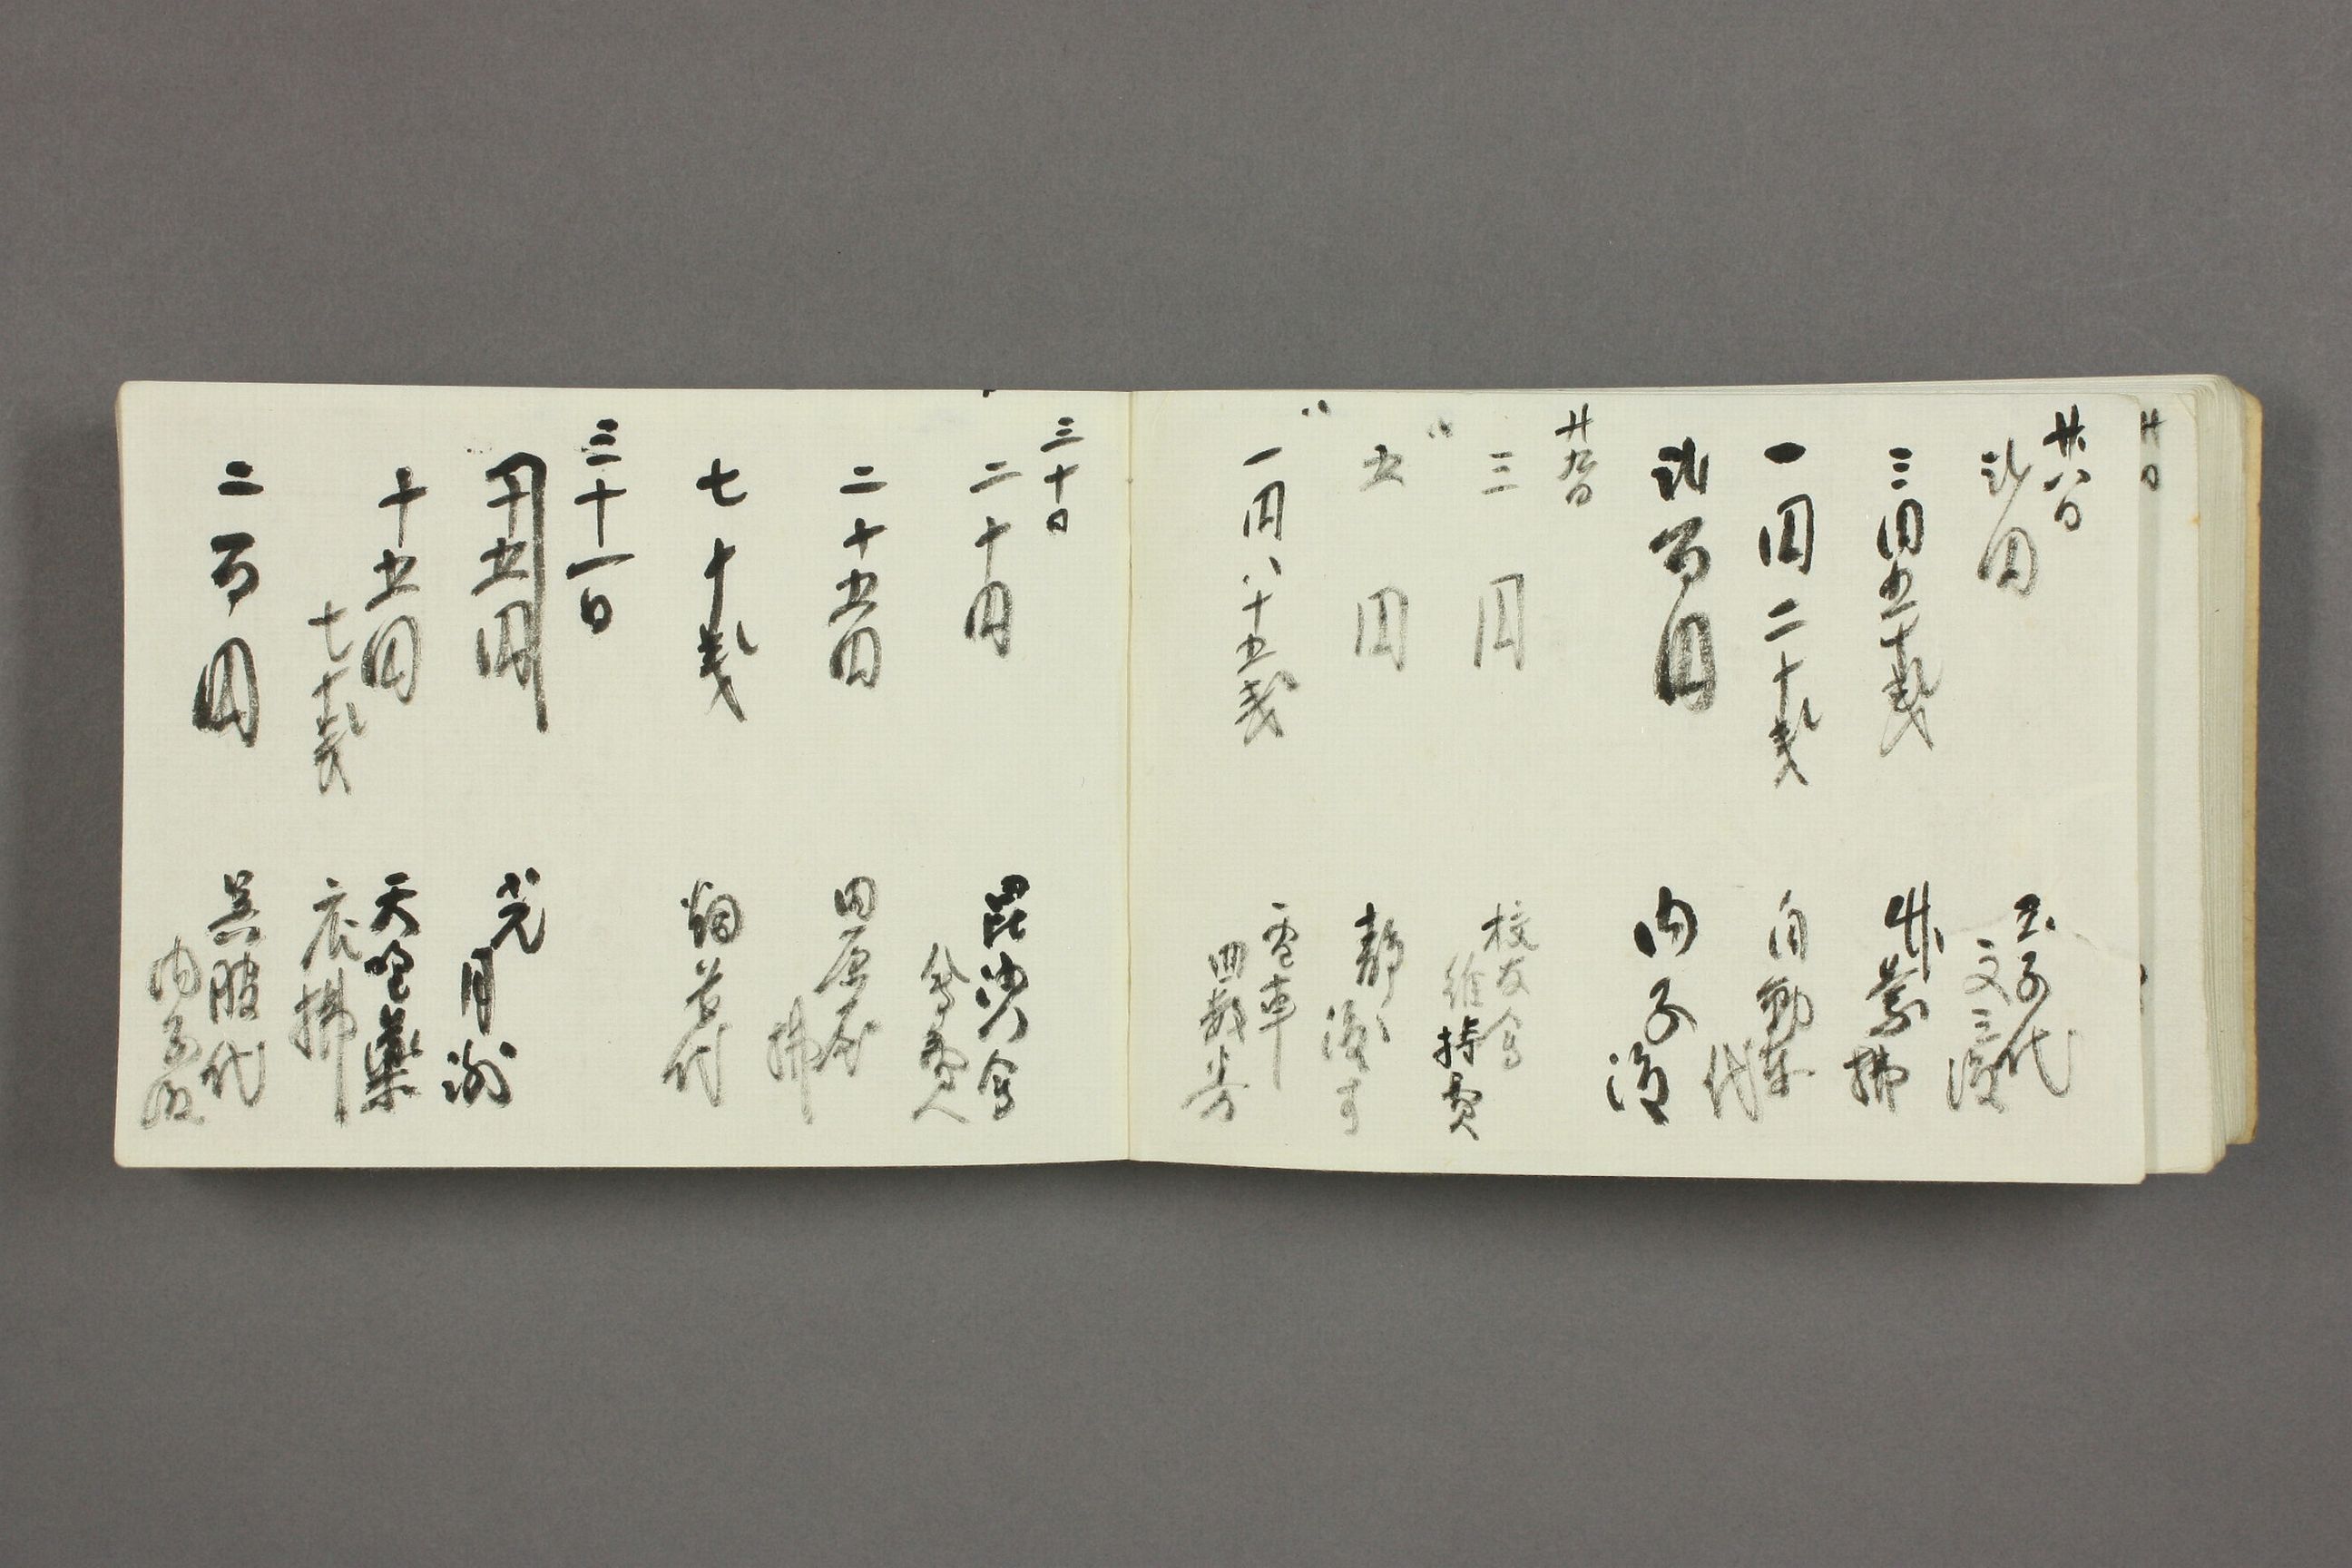 廿八日
弐円
玉子代
文三渡
三円五十銭
払
一円二十銭
自動車
代
弐百円
内子
渡
廿九日
三円
校友会
維持費
〃
五円
静
渡す
〃
一円八十五銭
電車
回数券
三十日
二十円
毘沙門会
会費
二十五円
田原屋
払
七十銭
代
三十一日
十五円
十五円
七十銭
天野薬
店払
二百円
呉服代
内子渡